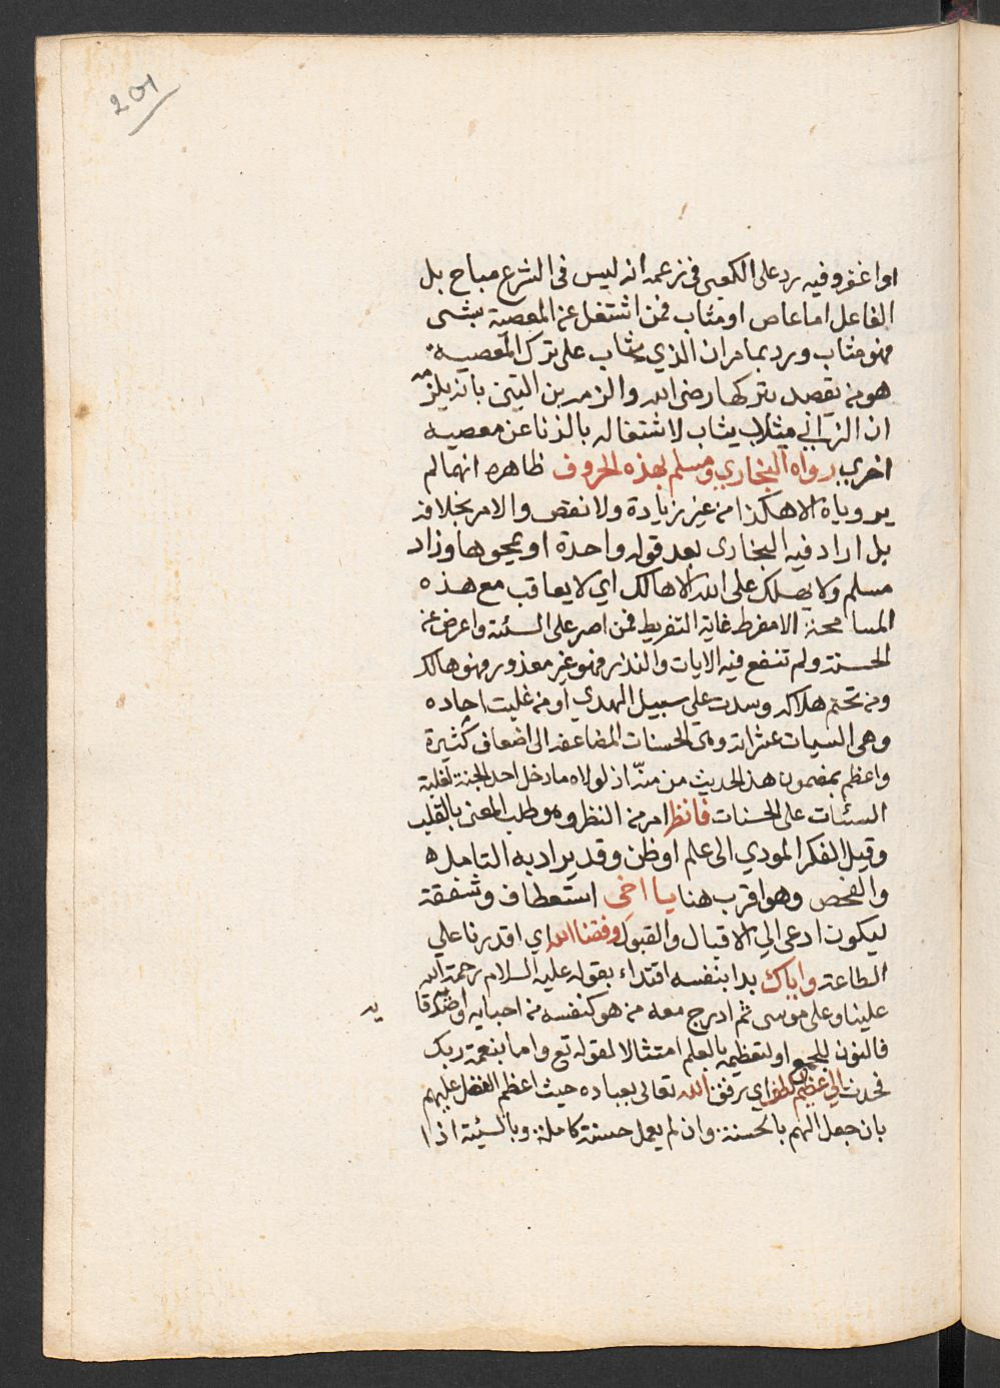 201
او اغفر وفيه رد على الكعبى فى زعمه انه ليس فى الشرع مباح بل
الفاعل اما عاص او مثاب فمن اشتغل عن المعصية بشى
فهو مثاب ورد بما مر ان الذي يثاب على ترك المعصيه
هو من يقصد بتركها رضى الله والزمه بن التين بانه يلزمه
ان الزانى مثلا يثاب لاشتغاله بالزنا عن معصيه
اخري رواه البخاري ومسلم بهذه الحروف ظاهره انهما لم
يروياه الا هكذا من غير زيادة ولا نقص والامر بخلافه
بل اراد فيه البخارى بعد قوله واحدة او يمحوها وزاد
مسلم ولا يهلك على الله الا هالك اي لا يعاقب مع هذه
المسامحة الا مفرط غاية التفريط فمن اصر على السئة واعرض عن
الحسنة ولم تنفع فيه الايات والنذر فهو غير معذور فهو هالك
ومن تحتم هلاكه وسدت على سبيل الهدي او من غلبت احاده
وهى السيات عشراته وهى الحسنات المضاعفه الى اضعاف كثيرة
واعظم بمضمون هذا الحديث من منّة اذ لولاه ما دخل احد الجنة لغلبة
السئات على الحسنات فانظر امر من النظر وهو طلب المعنى بالقلب
وقيل الفكر المودي الى علم او ظن وقد يراد به التامل
والفحص وهو اقرب هنا يا اخى استعطاف وشفقة
ليكون ادعى الي الاقبال والقبول وفقنا الله اي اقدرنا علي
الطاعة واياك بدا بنفسه اقتداء بقوله عليه السلام رحمة الله
علينا وعلى موسى ثم ادرج معه من هو كنفسه من احبايه واصدقا
يه
فالنون للجمع او لتعظيمه بالعلم امتثالا لقوله تع واما بنعمة ربك
فحدث الي عظيم لطف اي رفق الله تعالى بعباده حيث اعظم الفضل عليهم
بان جعل الهم بالحسنة وان لم يعمل حسنة كاملة وبالسيئة اذا